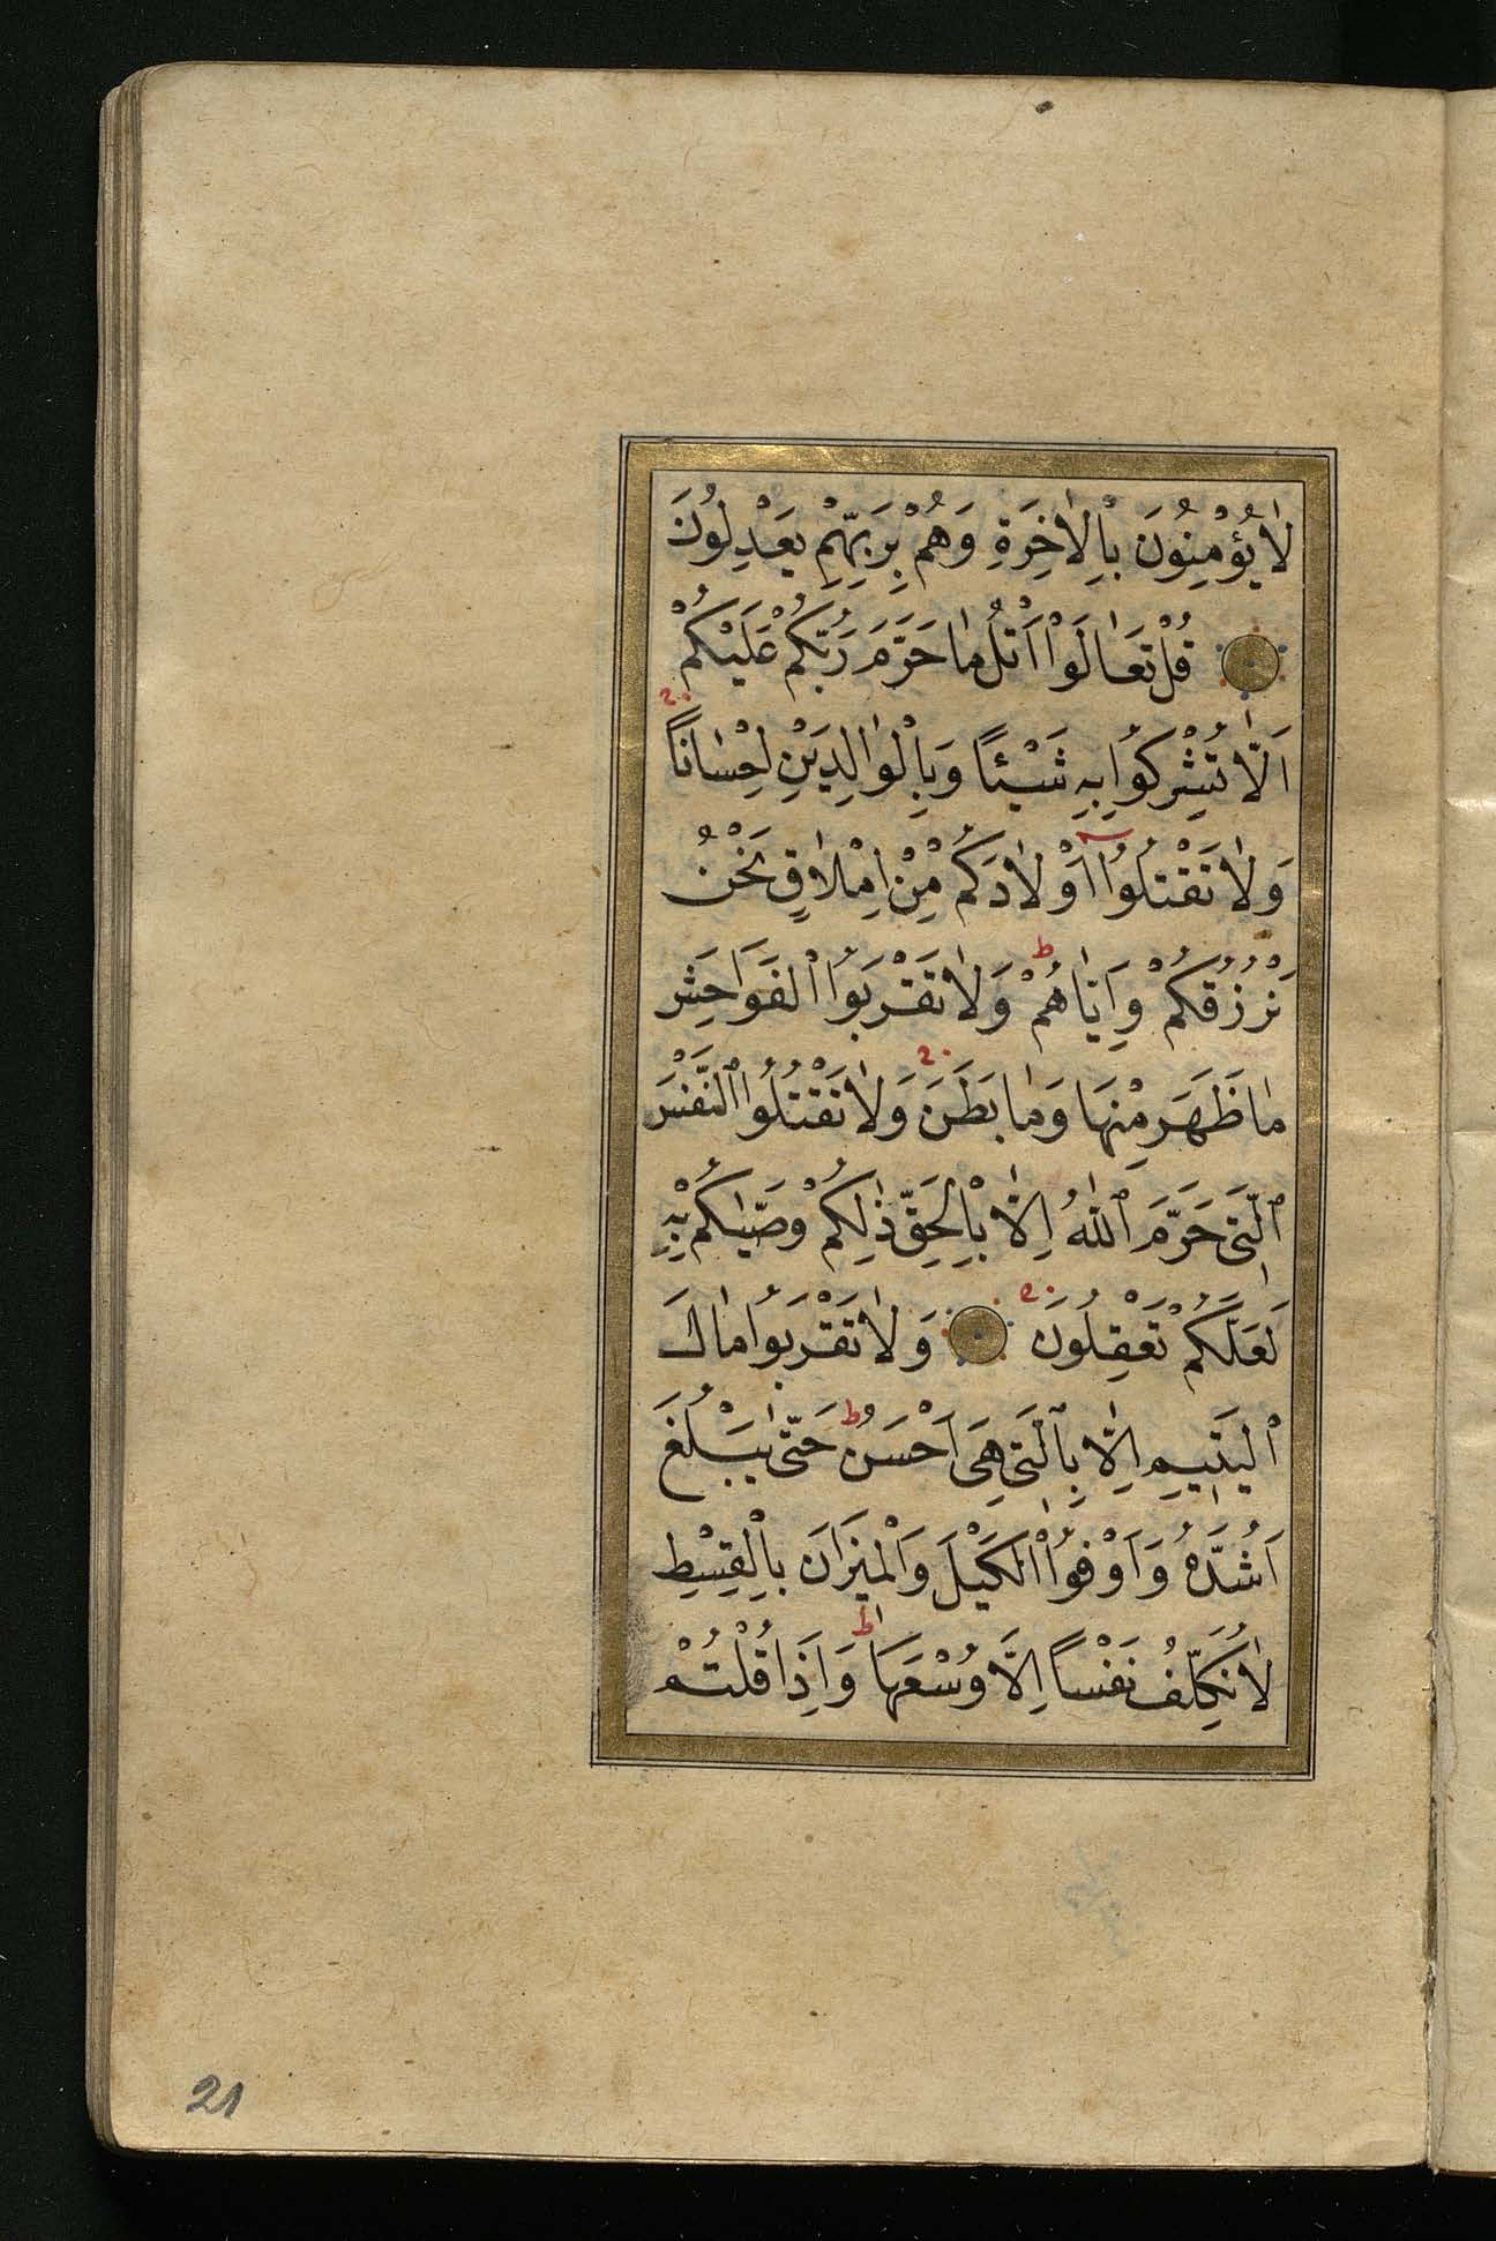 لَا يُؤْمِنُونَ بِالْاٰخِرَةِ وَهُمْ بِرَبِّهِمْ يَعْدِلُونَ
قُلْ تَعَالَوْا اَتْلُ مَا حَرَّمَ رَبُّكُمْ عَلَيْكُمْ
اَلَّا تُشْرِكُوا بِهِ شَيْئًا وَبِالْوَالِدَيْنِ اِحْسَانًا
وَلَا تَقْتُلُوا اَوْلَادَكُمْ مِنْ اِمْلَاقٍ نَحْنُ
نَرْزُقُكُمْ وَاِيَّاهُمْ ط وَلَا تَقْرَبُوا الْفَوَاحِشَ
مَا ظَهَرَ مِنْهَا وَمَا بَطَنَ وَلَا تَقْتُلُوا النَّفْسَ
الَّتِي حَرَّمَ اللّٰهُ اِلَّا بِالْحَقِّ ذٰلِكُمْ وَصّٰيكُمْ بِهِ
لَعَلَّكُمْ تَعْقِلُونَ وَلَا تَقْرَبُوا مَالَ
الْيَتِيمِ اِلَّا بِالَّتِي هِيَ اَحْسَنُ ط حَتّٰى يَبْلُغَ
اَشُدَّهُ وَاَوْفُوا الْكَيْلَ وَالْمِيزَانَ بِالْقِسْطِ
لَا نُكَلِّفُ نَفْسًا اِلَّا وُسْعَهَا ط وَاِذَا قُلْتُمْ
21